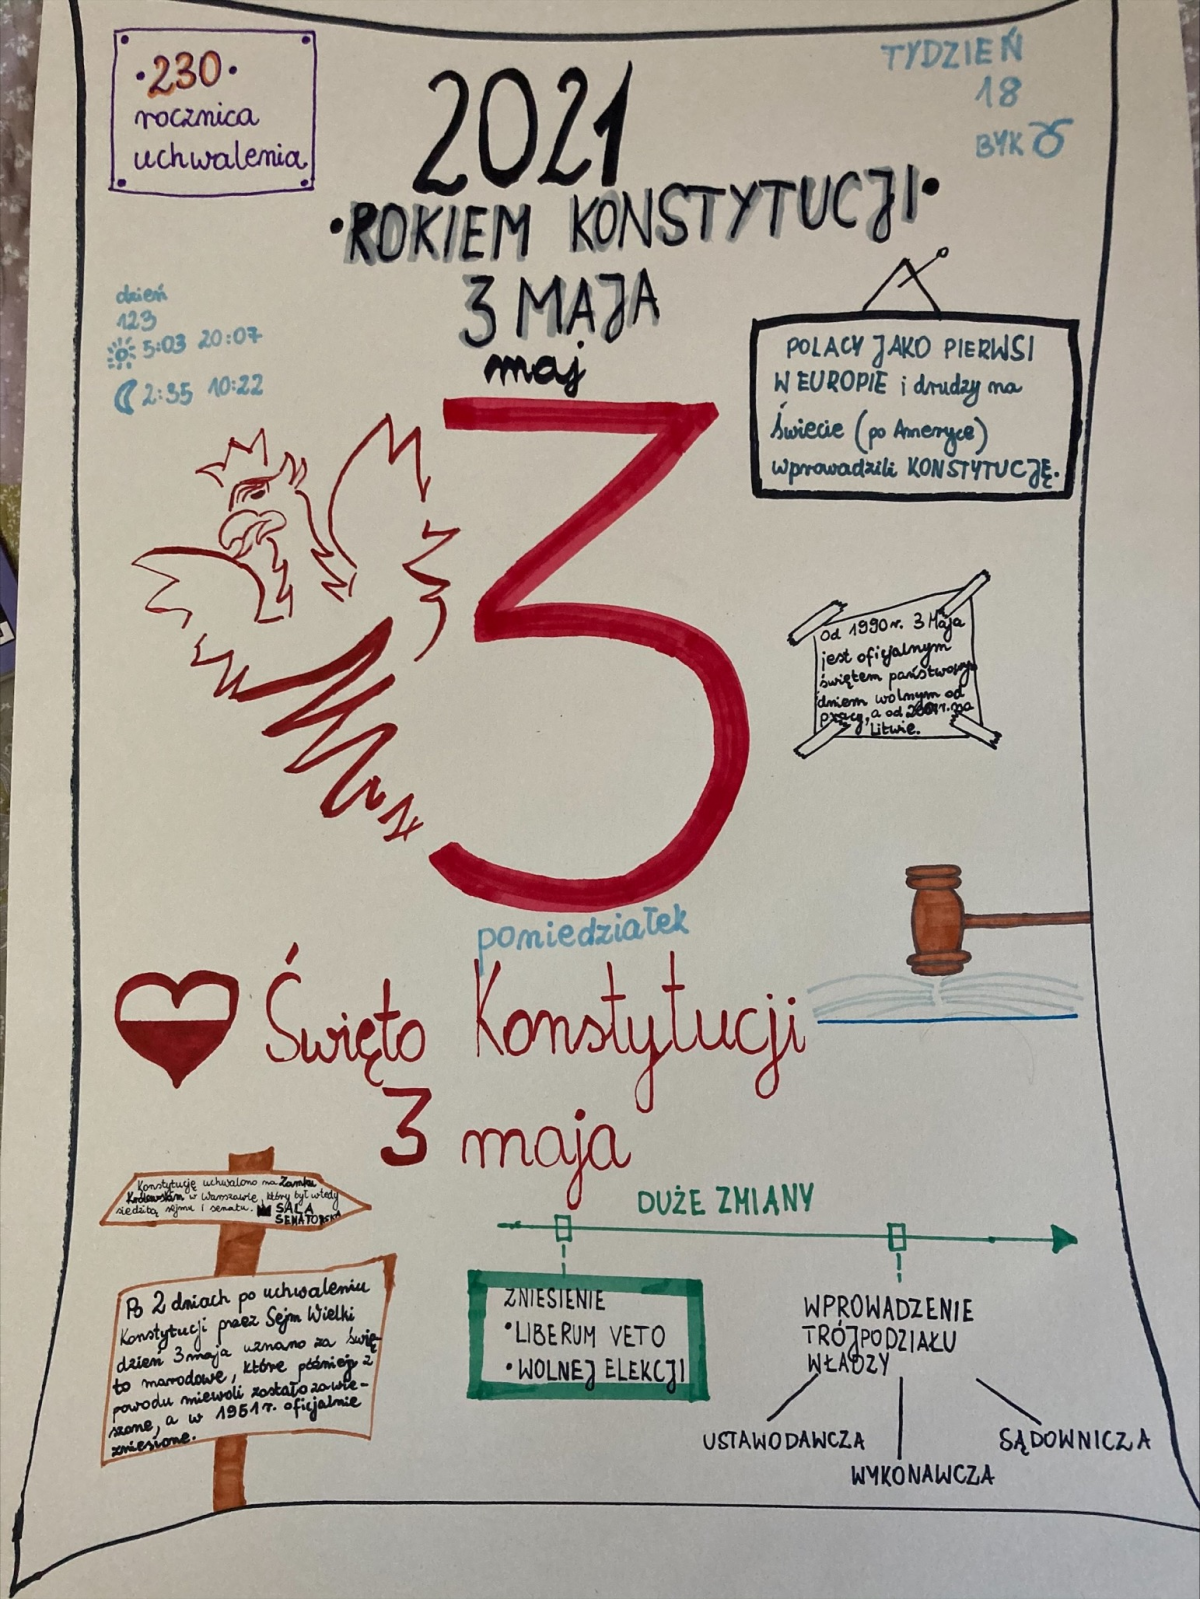 •230•
rocznica
uchwalenia
TYDZIEŃ
18
BYK ♉
2021
•ROKIEM KONSTYTUCJI•
3 MAJA
maj
dzień
123
5:03 20:07
2:35 10:22
POLACY JAKO PIERWSI
W EUROPIE i drudzy na
świecie (po Ameryce)
wprowadzili KONSTYTUCJĘ.
3
Od 1990 r. 3 Maja
jest oficjalnym
świętem państwowym
dniem wolnym od
pracy, a od na
Litwie.
poniedziałek
Święto Konstytucji
3 maja
Konstytucję uchwalono na Zamku
Królewskim w Warszawie, który był wtedy
siedzibą sejmu i senatu. SALA
SENATORSKA
Po 2 dniach po uchwaleniu
Konstytucji przez Sejm Wielki
dzień 3 maja uznano za świę-
to narodowe, które później z
powodu niewoli zostało zawie-
szone, a w 1951 r. oficjalnie
zniesione.
DUŻE ZMIANY
ZNIESIENIE
•LIBERUM VETO
•WOLNEJ ELEKCJI
WPROWADZENIE
TRÓJPODZIAŁU
WŁADZY
USTAWODAWCZA
WYKONAWCZA
SĄDOWNICZA